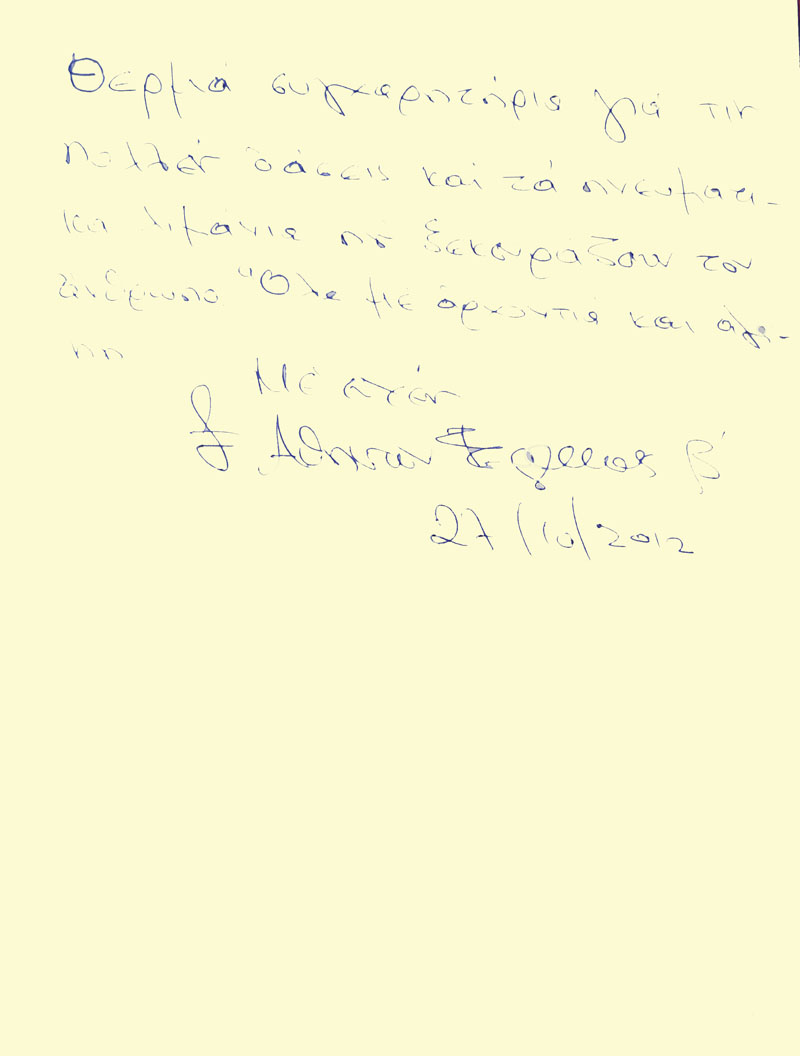 Θερμιά συγχαρητήρια γιά τις
πολλές ὀάσεις και τά πνευματι-
κα λιμάνια πὀ ξεκουράζουν τον
ἄνθρωπο Ὅλα με ἀρχοντιά και ἀγά-
πη
Μέ
Ἀθηνῶν β'
27/10/2012